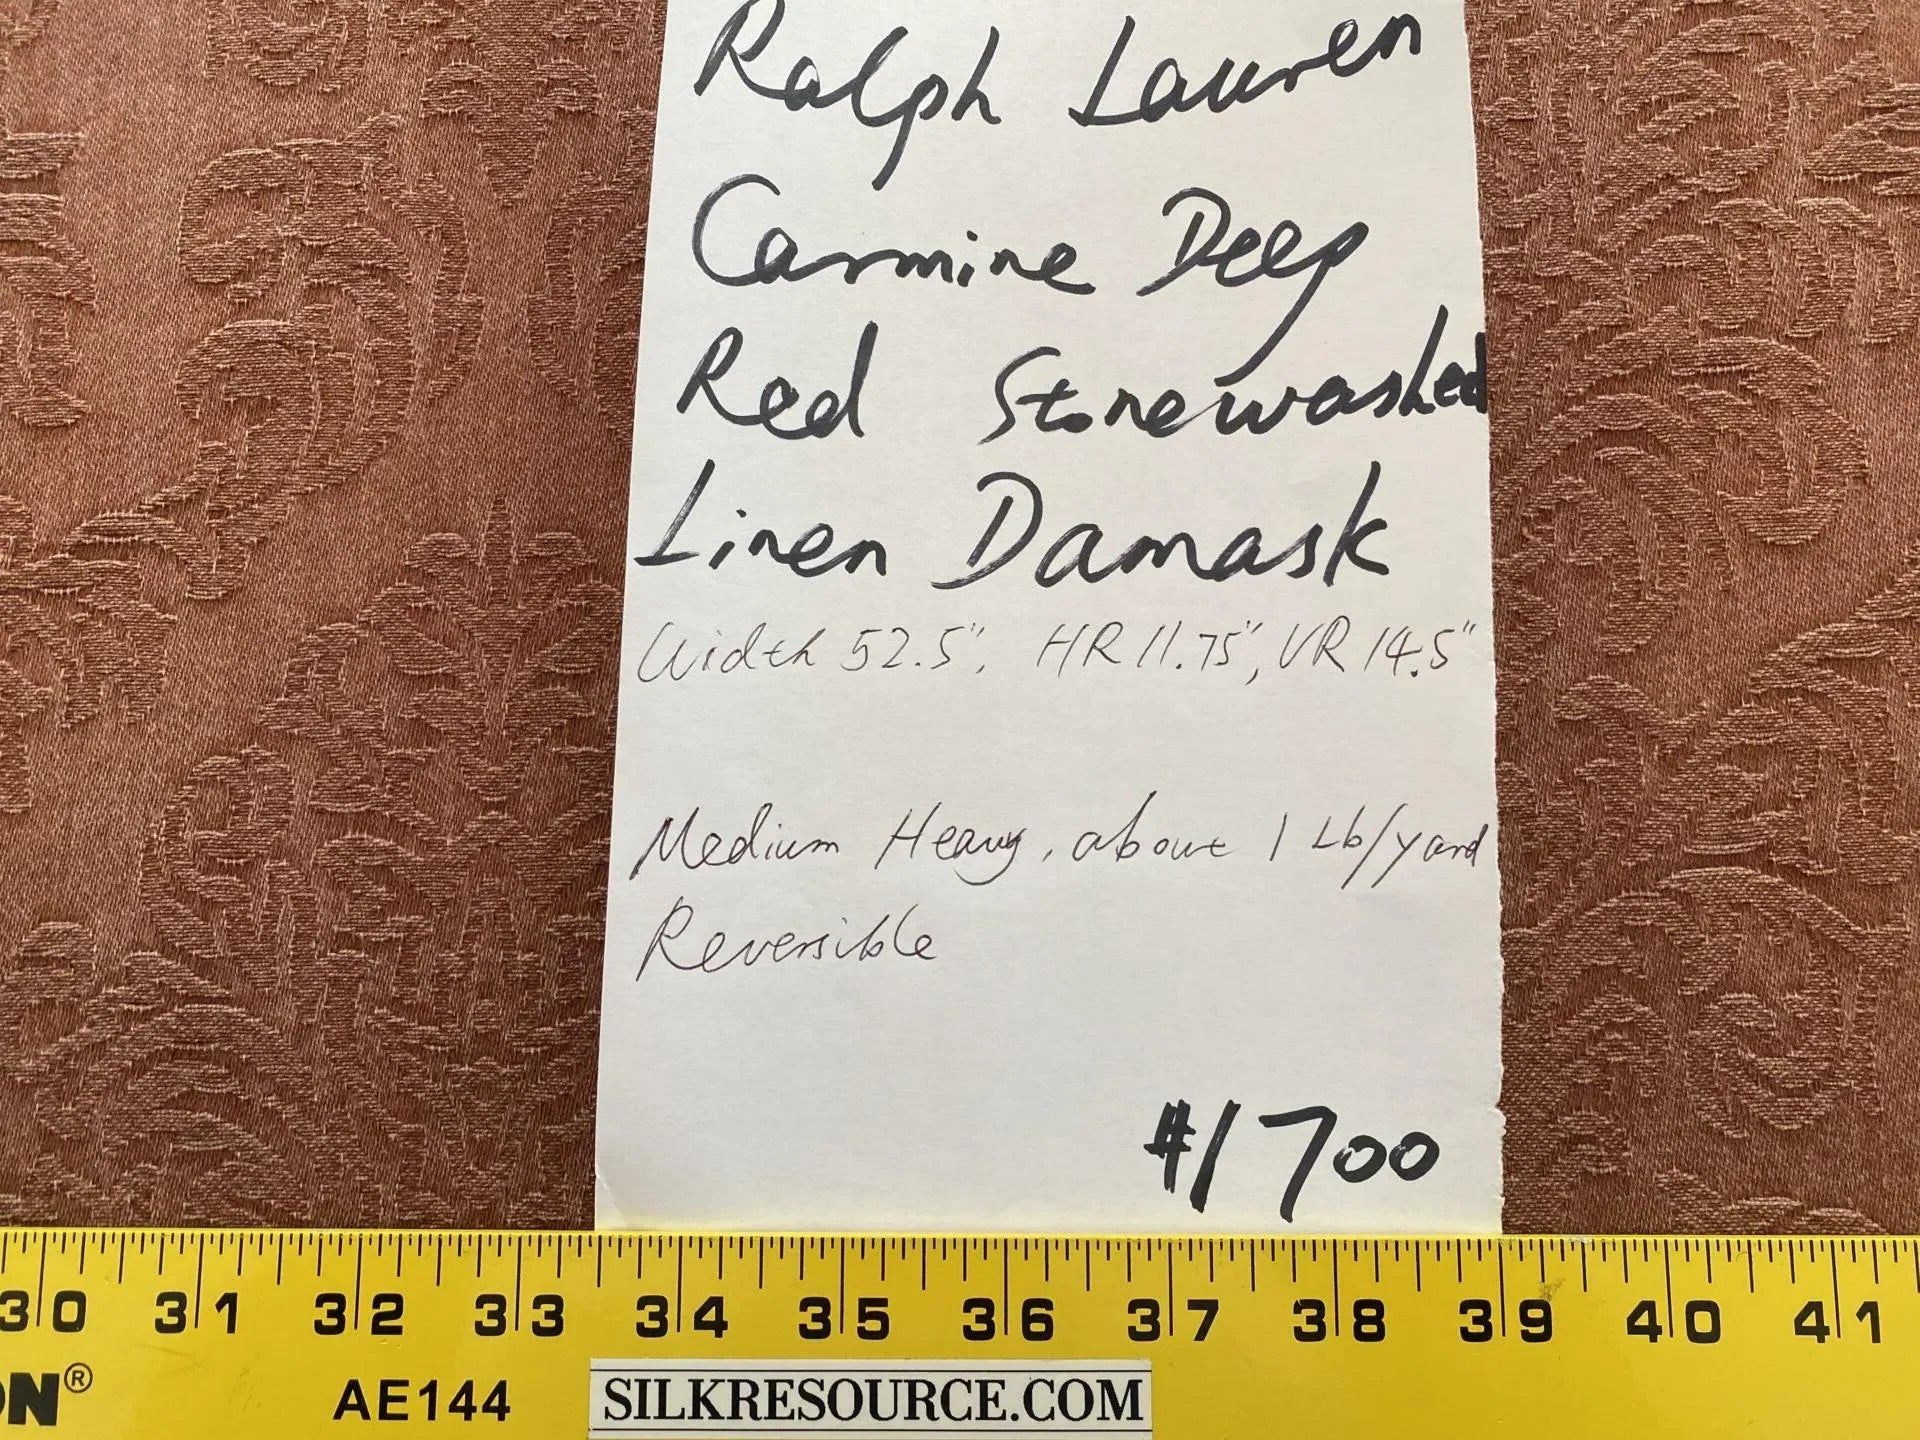 Ralph Lauren
Carmine Deep
Red Stonewashed
Linen Damask
Width 52.5", HR 11.75", VR 14.5"
Medium Heavy, above 1 Lb/yard
Reversible
#1700
30 31 32 33 34 35 36 37 38 39 40 41
ON® AE144 SILKRESOURCE.COM